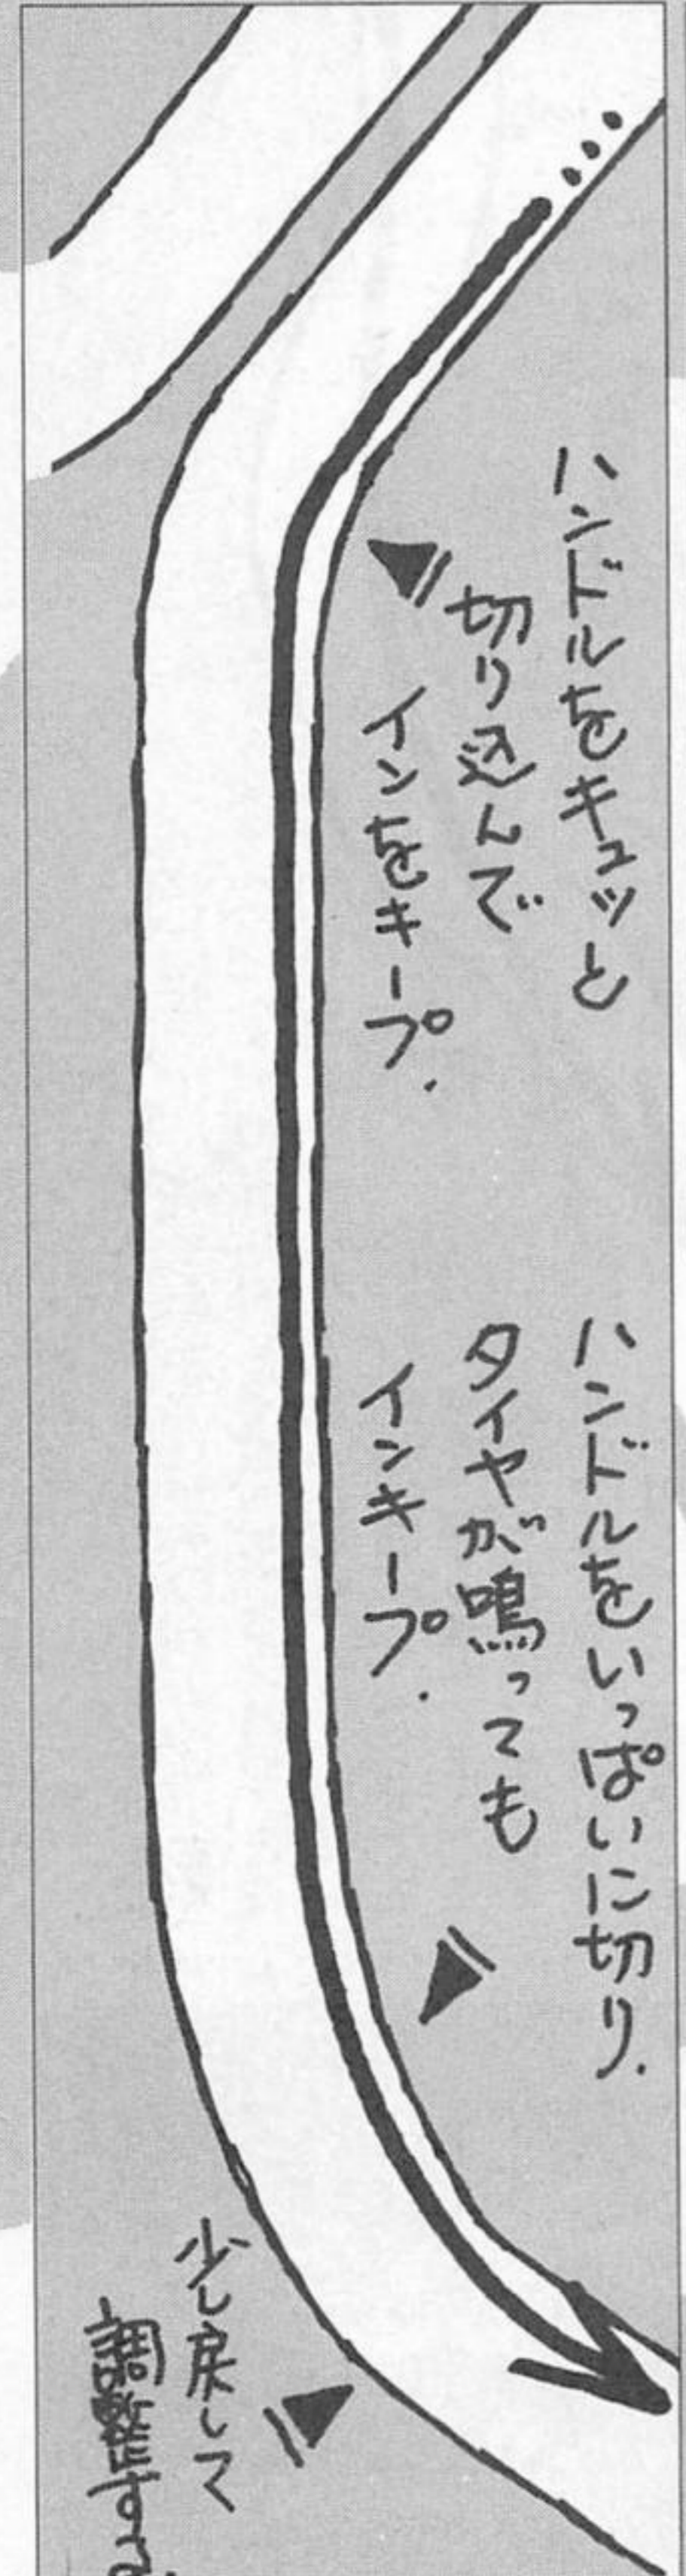 ハンドルをキュッと
切り込んで
インをキープ.
ハンドルをいっぱいに切り.
タイヤが鳴っても
インキープ.
少し戻して
調整する